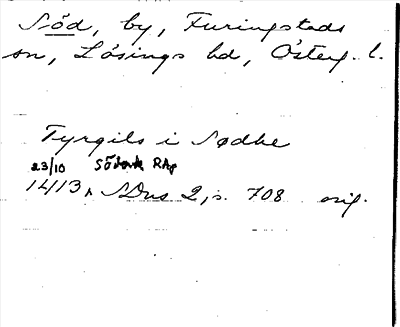 Söd, by, Furingstads
sn, Lösings hd, Österg. l.
Tyrgils i Sødhe
23/10 Söderk RAp
1413 ʌ SDns 2, s. 708 orig.